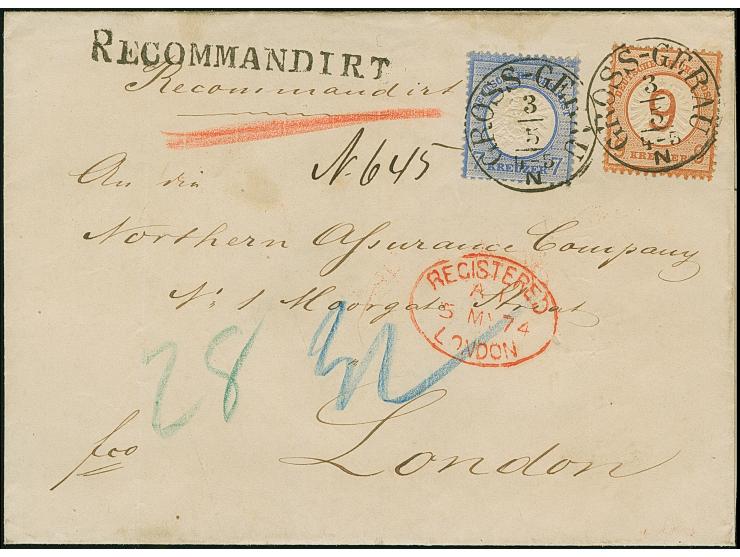 RECOMMANDIRT
Recommandirt
GROSS-GERAU
3
5
4-5
N
KREUZER 7
GROSS-GERAU
3
5
4-5
N
9
KREUZER
No 645
An die
Northern Assurance Company
No 1 Moorgate Street
REGISTERED
5 MY 74
LONDON
28
fco
London